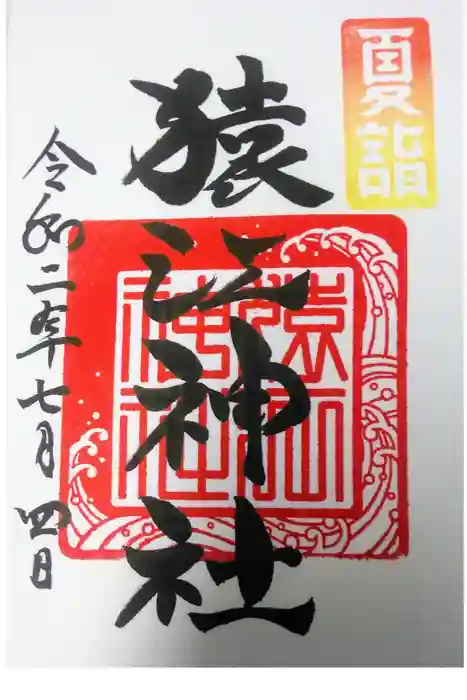 夏詣
猿江神社
猿江神社
令和二年七月四日